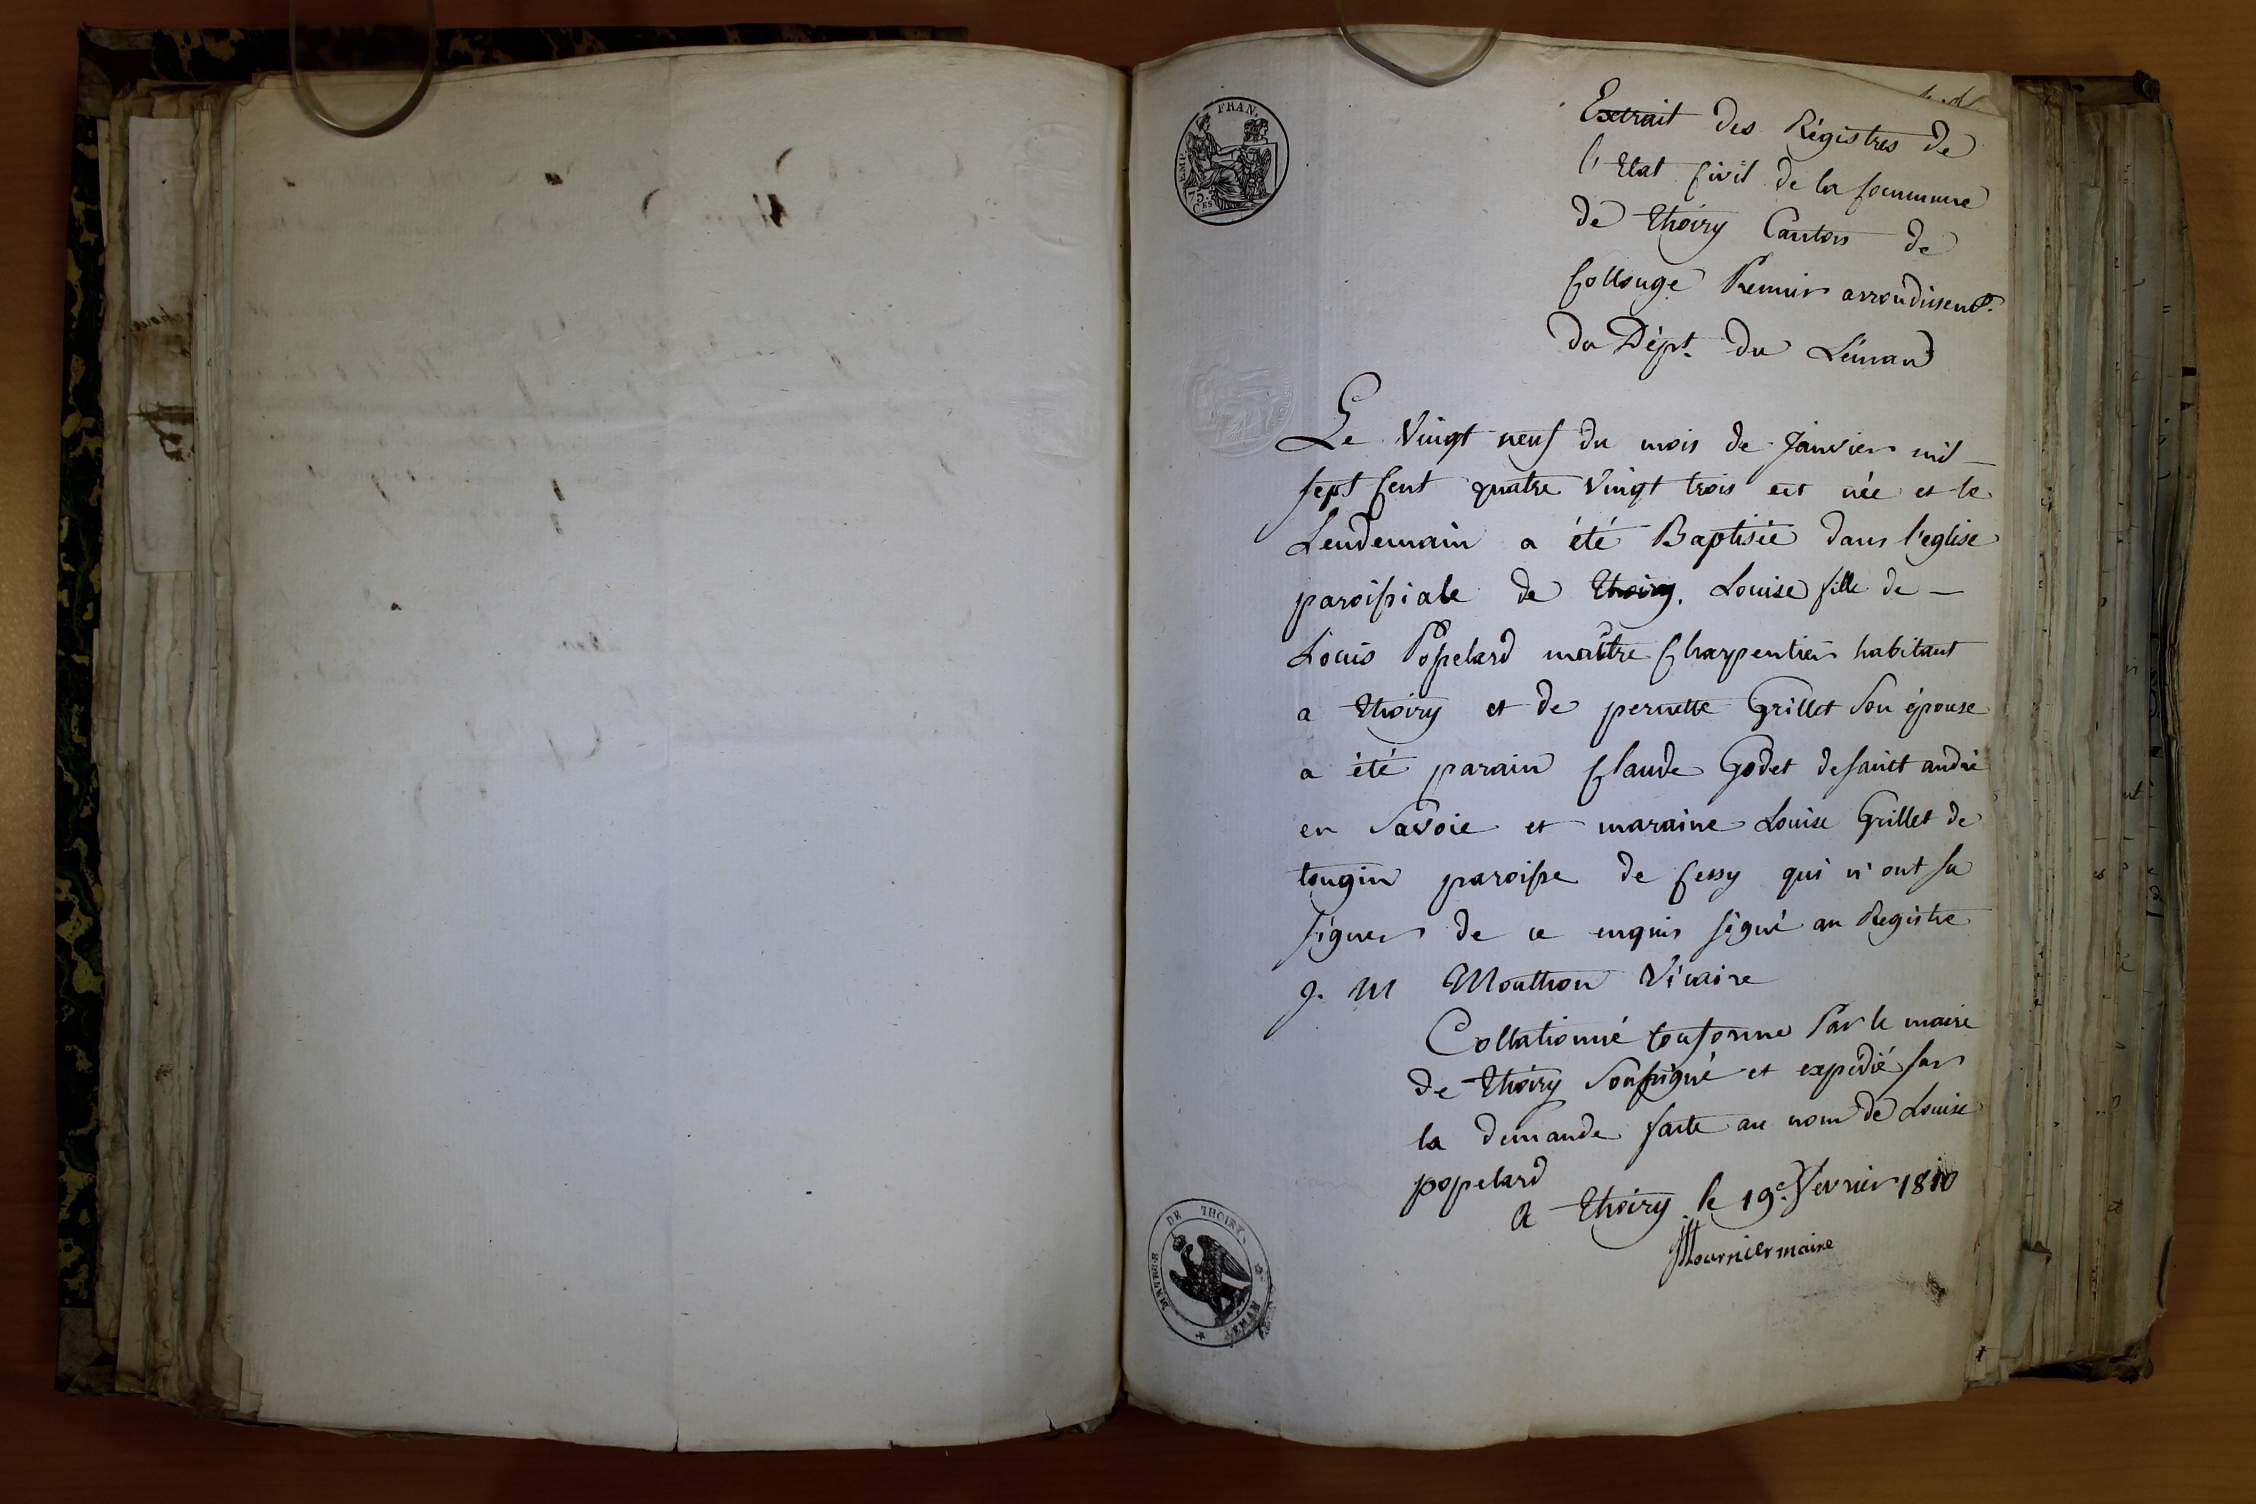 EMP. FRAN.
75.
CES
Extrait des Régistres de
l'Etat Civil de la Commune
de Thoiry Canton de
Collonge Premier arrondissent.
du Dépt. du Léman
Le Vingt neuf du mois de Janvier mil
sept Cent quatre Vingt trois est née et le
Lendemain a été Baptisée dans l'eglise
paroissiale de Thoiry. Louise fille de —
Louis Popelard maître Charpentier habitant
a Thoiry et de pernette Grillet son épouse
a été parain Claude Godet de saint andré
en Savoie et maraine Louise Grillet de
tougin paroisse de Cessy qui n'ont su
signer de ce enquis signé au Registre
J. M Mouthon Vicaire
Collationné Conforme Par le maire
de Thoiry Soussigné et expédié sur
la demande faite au nom de Louise
popelard
A Thoiry le 19e. fevrier 1810
maire
MAIRIE DE THOIRY